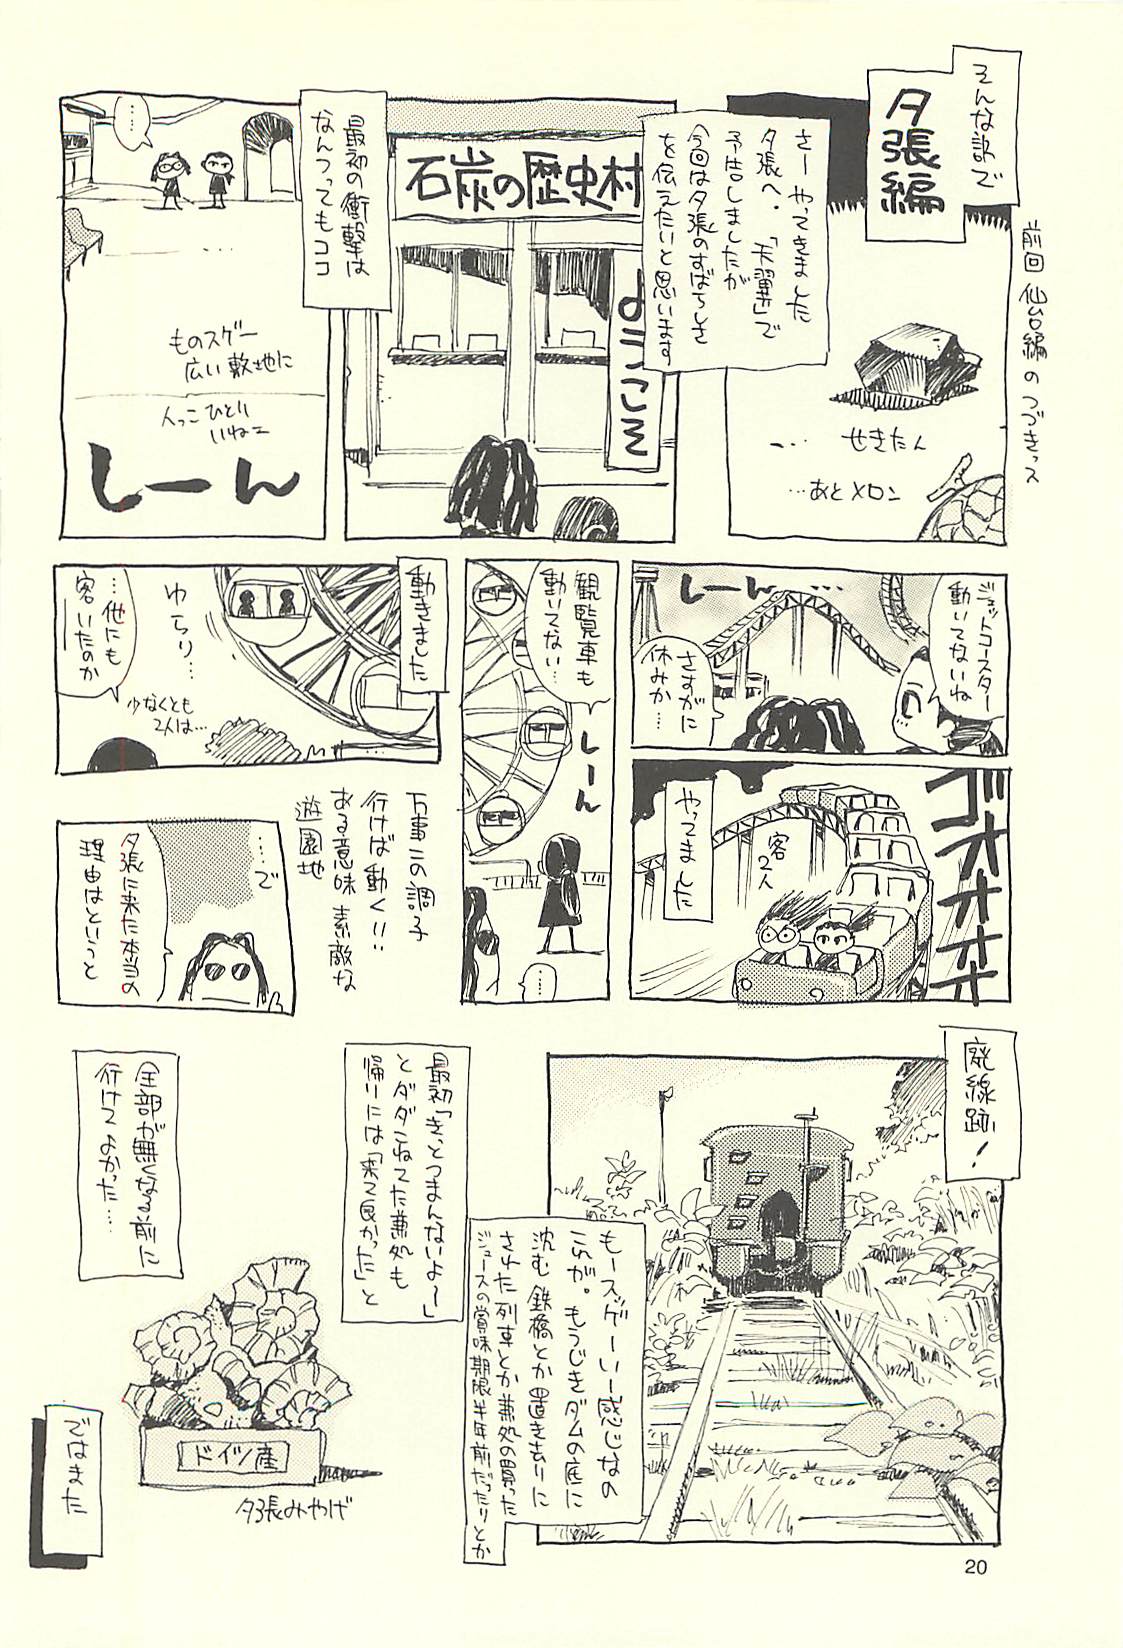 そんな訳で
夕張編
前回仙台編のつづきっス
さーやってきました
夕張へ。「天翼」で
予告しましたが
今回は夕張のすばらしさ
を伝えたいと思います
せきたん
…あとメロン
石炭の歴史村
ようこそ
最初の衝撃は
なんつってもココ
…
…
ものスゲー
広い敷地に
人っこひとり
いねェ
しーん
ジェットコースター
動いてないね
しーん…
さすがに
休みか…
ゴオオオオ
やってました
客
2人
観覧車も
動いてない…
しーん
…
動きました
ゆらり…
…他にも
客いたのか
少なくとも
2人は…
万事この調子
行けば動く!!
ある意味素敵な
遊園地
…で
夕張に来た本当の
理由はというと
廃線跡!
もースッゲーいー感じなの
これが。もうじきダムの底に
沈む鉄橋とか置き去りに
された列車とか兼処の買った
ジュースの賞味期限半年前だったりとか
最初「きっとつまんないよ〜」
とダダこねてた兼処も
帰りには「来て良かった」と
全部が無くなる前に
行けてよかった…
ドイツ産
夕張みやげ
ではまた
20